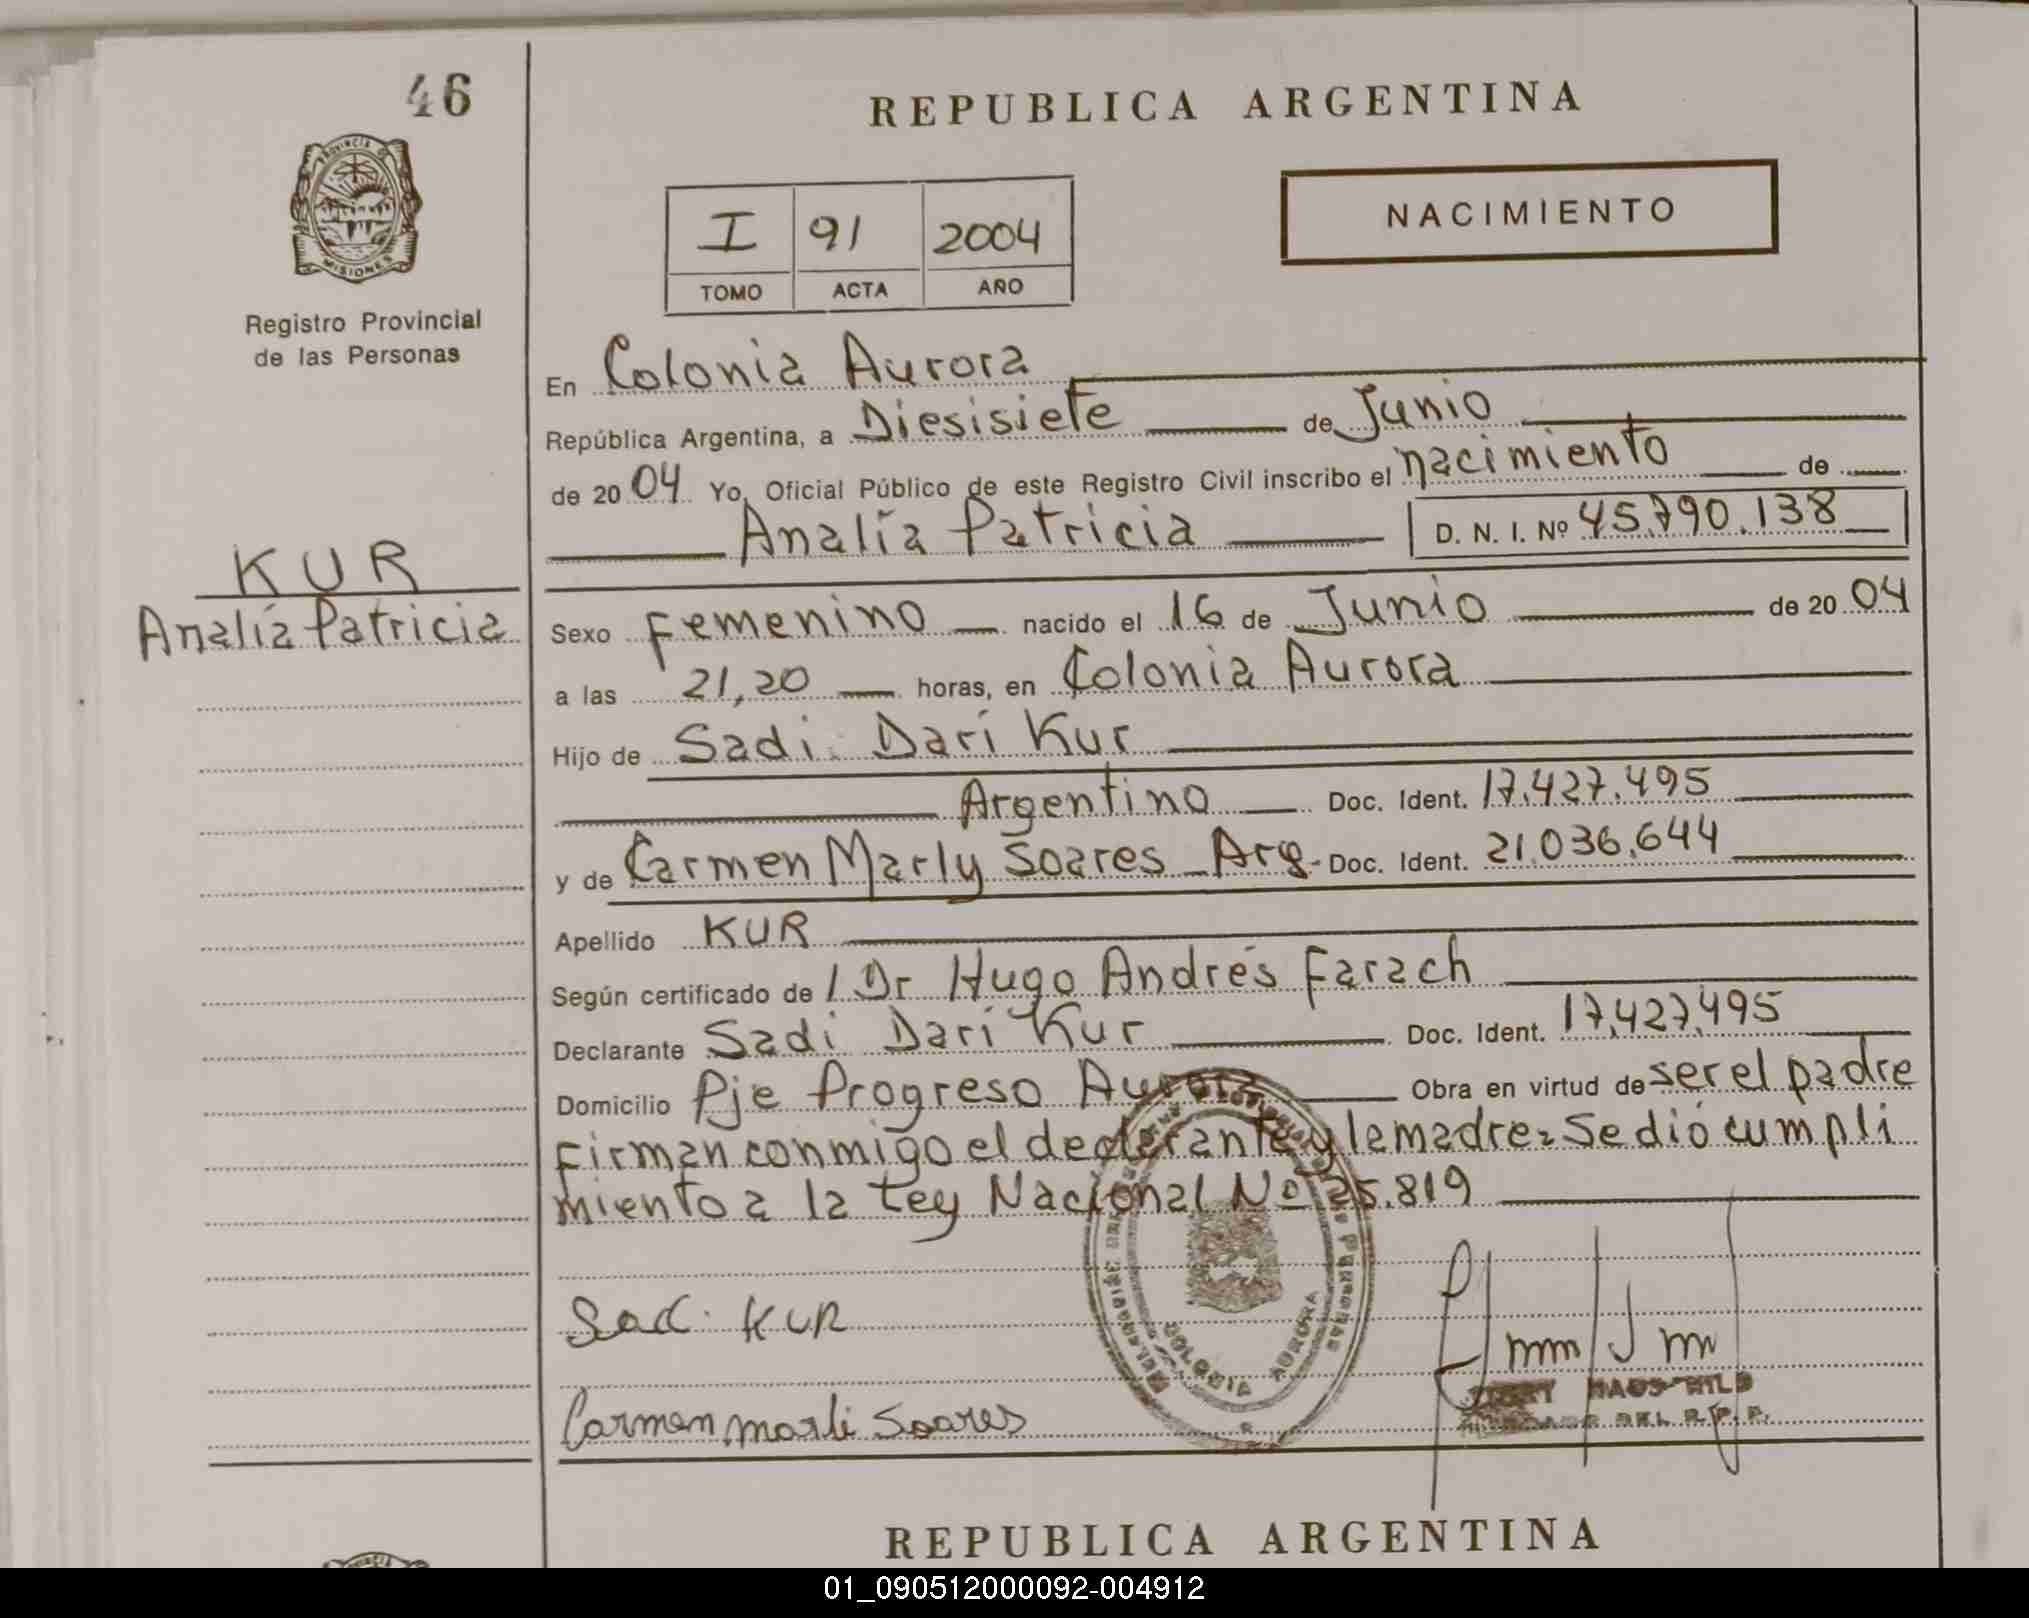 46
REPUBLICA ARGENTINA
PROVINCIA DE
MISIONES
Registro Provincial
de las Personas
NACIMIENTO
I 91 2004
TOMO ACTA AÑO
En Colonia Aurora
República Argentina, a Diesisiete de Junio
de 2004 Yo, Oficial Público de este Registro Civil inscribo el nacimiento de
Analía Patricia D. N. I. Nº 45.790.138
KUR
Analía Patricia
Sexo Femenino nacido el 16 de Junio de 2004
a las 21,20 horas, en Colonia Aurora
Hijo de Sadi Darí Kur
Argentino Doc. Ident. 17.427.495
y de Carmen Marly Soares Arg. Doc. Ident. 21.036.644
Apellido KUR
Según certificado de / Dr Hugo Andrés Farach
Declarante Sadi Darí Kur Doc. Ident. 17.427.495
Domicilio Pje Progreso Aurora Obra en virtud de ser el padre
Firman conmigo el declarante y la madre = Se dió cumpli
miento a la Ley Nacional Nº 25.819
Sadi KUR
Carmen Marli Soares
COLONIA AURORA
DEL R.P.P.
REPUBLICA ARGENTINA
01_090512000092-004912